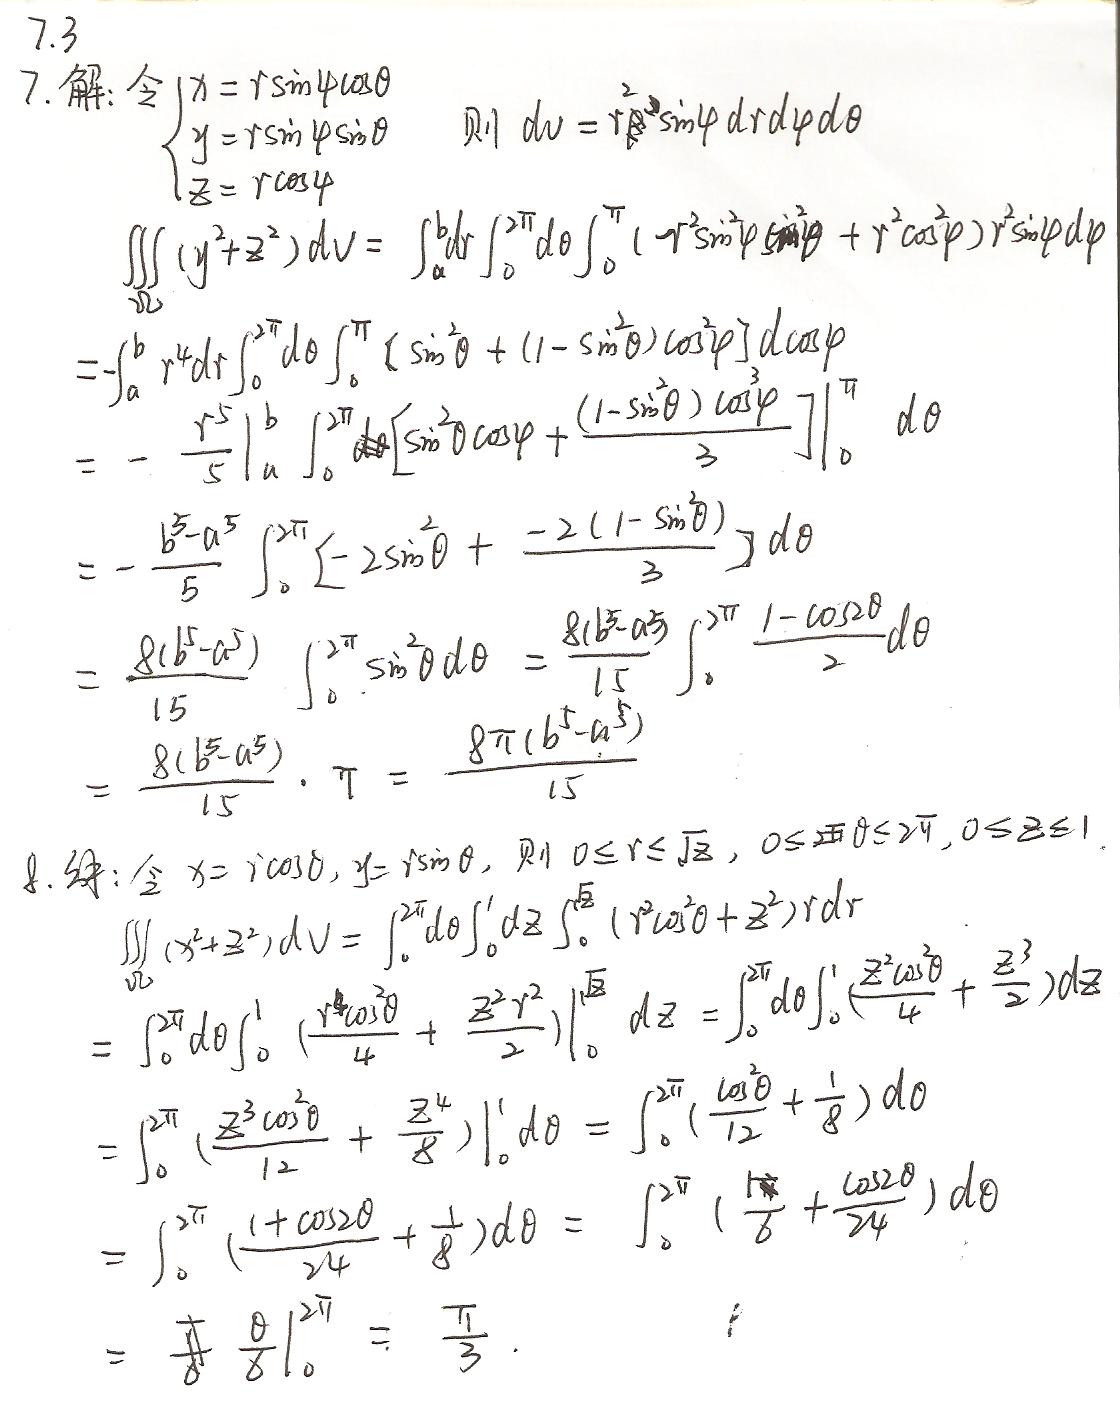 7.3
7. 解: 令 { x = r sinφcosθ
y = r sinφ sinθ 则 dv = r² sinφ dr dφ dθ
z = r cosφ
∭_Ω (y²+z²) dv = ∫_a^b dr ∫_0^{2π} dθ ∫_0^π ( r²sin²φ sin²θ + r²cos²φ) r²sinφ dφ
= -∫_a^b r⁴dr ∫_0^{2π} dθ ∫_0^π [ sin²θ + (1-sin²θ) cos²φ] d cosφ
= - r⁵/5 |_a^b ∫_0^{2π} [sin²θ cosφ + (1-sin²θ) cos³φ / 3 ] |_0^π dθ
= - (b⁵-a⁵)/5 ∫_0^{2π} [-2sin²θ + -2(1-sin²θ)/3 ] dθ
= 8(b⁵-a⁵)/15 ∫_0^{2π} sin²θ dθ = 8(b⁵-a⁵)/15 ∫_0^{2π} (1-cos2θ)/2 dθ
= 8(b⁵-a⁵)/15 · π = 8π(b⁵-a⁵)/15
8. 解: 令 x = rcosθ, y = rsinθ, 则 0≤r≤√z, 0≤θ≤2π, 0≤z≤1.
∭_Ω (x²+z²) dV = ∫_0^{2π} dθ ∫_0^1 dz ∫_0^{√z} (r²cos²θ + z²) r dr
= ∫_0^{2π} dθ ∫_0^1 (r⁴cos²θ/4 + z²r²/2) |_0^{√z} dz = ∫_0^{2π} dθ ∫_0^1 (z²cos²θ/4 + z³/2) dz
= ∫_0^{2π} (z³cos²θ/12 + z⁴/8) |_0^1 dθ = ∫_0^{2π} (cos²θ/12 + 1/8) dθ
= ∫_0^{2π} ((1+cos2θ)/24 + 1/8) dθ = ∫_0^{2π} (1/6 + cos2θ/24) dθ
= θ/6 |_0^{2π} = π/3 .